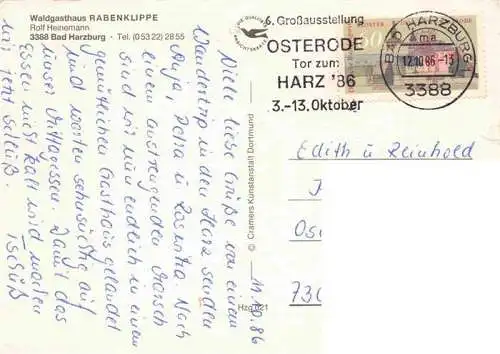 Waldgasthaus RABENKLIPPE
Rolf Heinemann
3388 Bad Harzburg · Tel. (05322) 2855
DIE QUALITÄTS
ANSICHTSKARTE
6. Großausstellung
OSTERODE
Tor zum
HARZ '86
3.-13. Oktober
BAD HARZBURG 1
ma
12.10.86-13
3388
60
11.10.86
Viele liebe Grüße von einem
Wandertrip in den Harz senden
Anja, Petra u. Roswitha. Nach
einem anstrengenden Marsch
sind wir nun endlich in einem
gemütlichen Gasthaus gelandet
und warten sehnsüchtig auf
unser Mittagessen. Damit das
Essen nicht kalt wird machen
wir jetzt Schluß.
Tschüß
© Cramers Kunstanstalt Dortmund
Hzg 021
Edith u Reinhold
Os
730